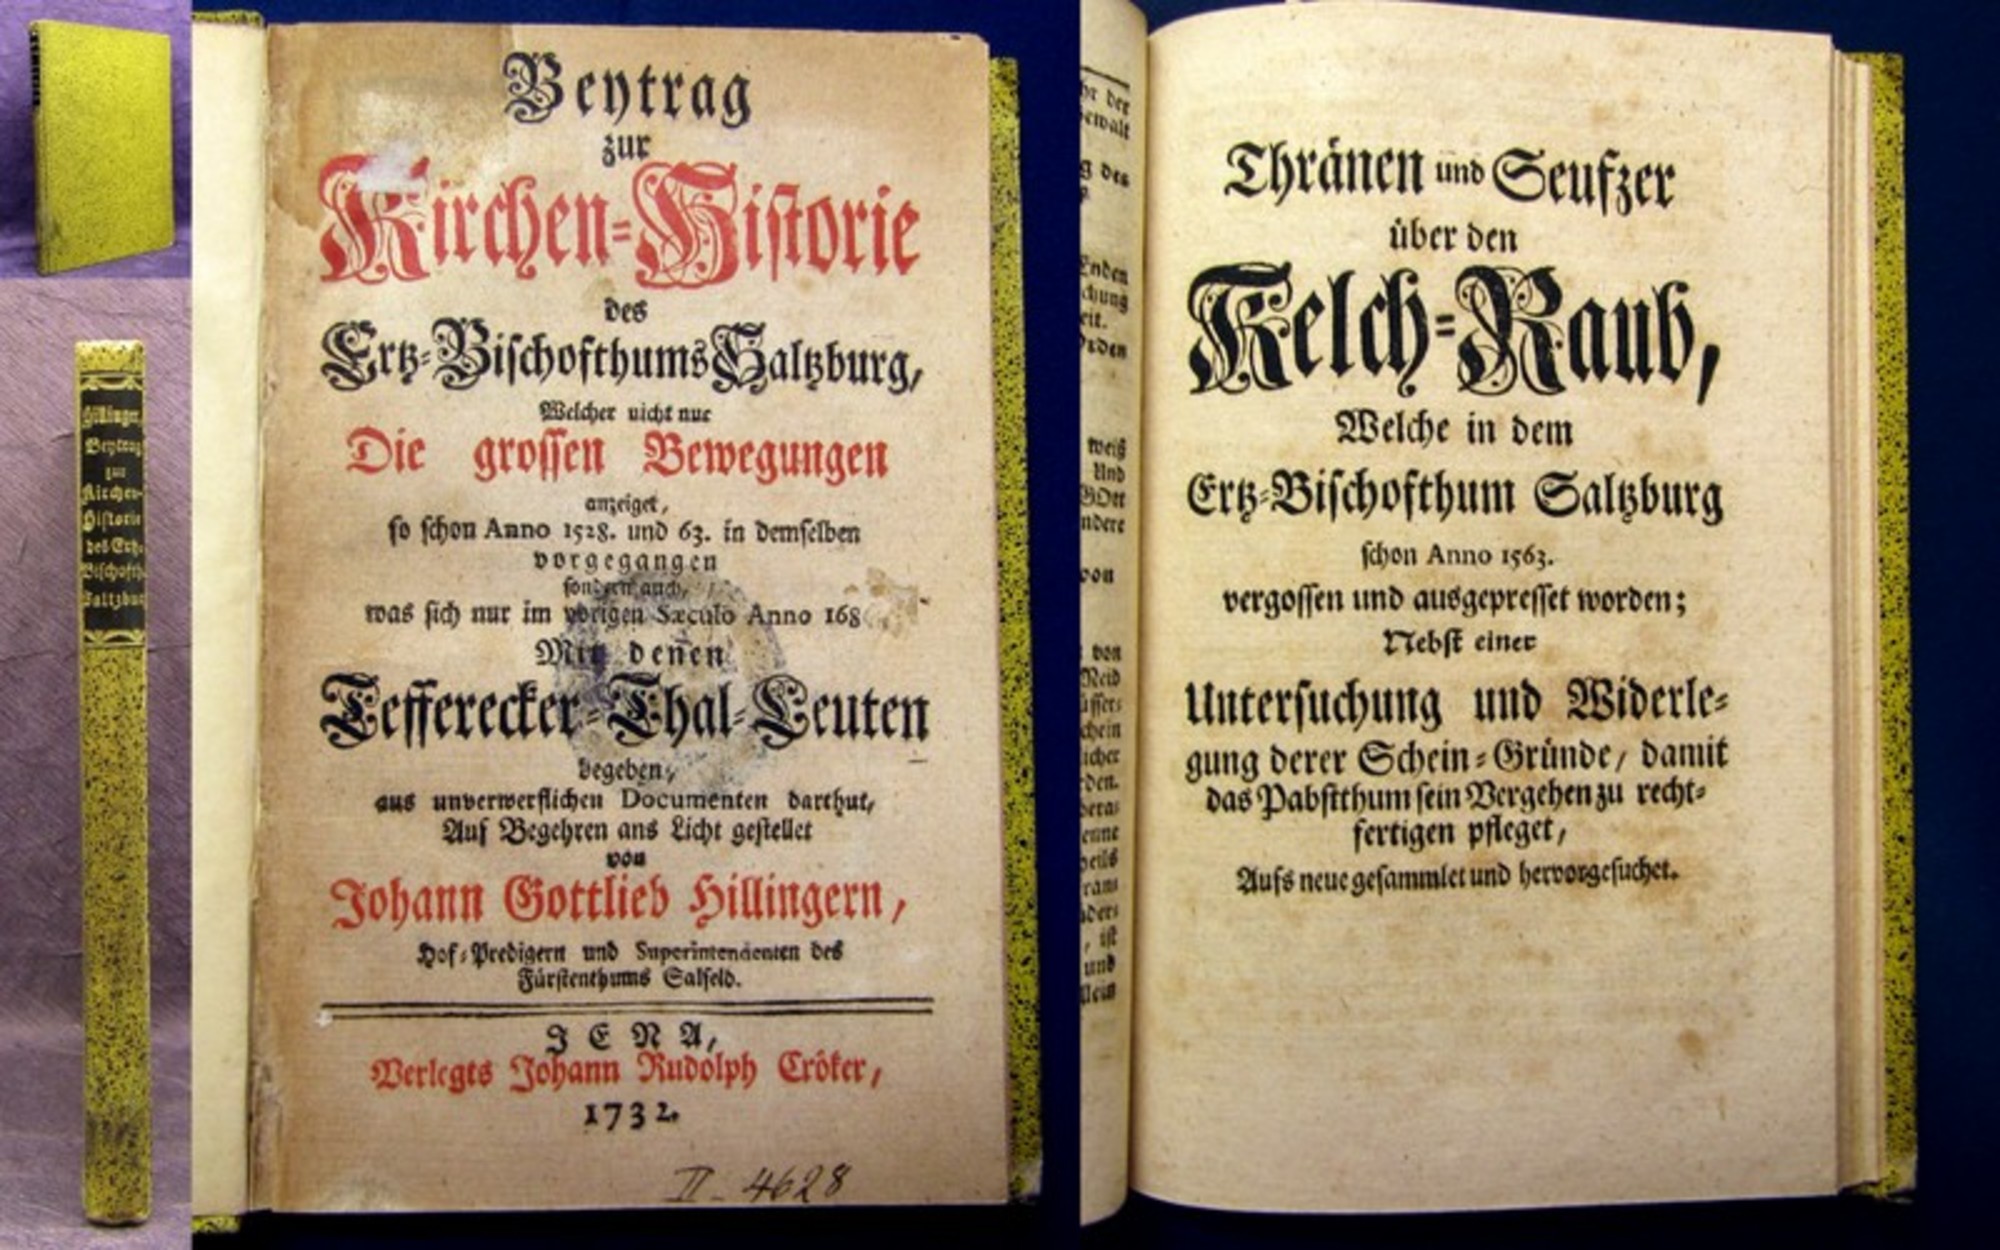 Hillinger,
Beytrag
zur
Kirchen-
Historie
des Ertz-
Bischofth.
Saltzbur
Beytrag
zur
Kirchen-Historie
des
Ertz-Bischofthums Saltzburg,
Welcher nicht nur
Die grossen Bewegungen
anzeiget,
so schon Anno 1528. und 63. in demselben
vorgegangen
sondern auch,
was sich nur im vorigen Sæculo Anno 168
Mit denen
Tefferecker-Thal-Leuten
begeben,
aus unverwerflichen Documenten darthut,
Auf Begehren ans Licht gestellet
von
Johann Gottlieb Hillingern,
Hof-Predigern und Superintendenten des
Fürstenthums Salfeld.
JENA,
Verlegts Johann Rudolph Cröker,
1732.
II- 4628
hr der
ewalt
g des
Enden
chung
eit.
weiß
Und
GOtt
ndere
von
von
Neid
schein
licher
rden.
enne
heils
ist
und
llein
Thränen und Seufzer
über den
Kelch-Raub,
Welche in dem
Ertz-Bischofthum Saltzburg
schon Anno 1563.
vergossen und ausgepresset worden;
Nebst einer
Untersuchung und Widerle-
gung derer Schein-Gründe, damit
das Pabstthum sein Vergehen zu recht-
fertigen pfleget,
Aufs neue gesammlet und hervorgesuchet.